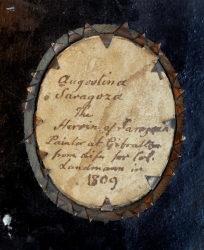 Augostina
Saragoza
The
Heroin of Saragoza
Painted at Gibraltar
from Life for Col.
Landmann in
1809